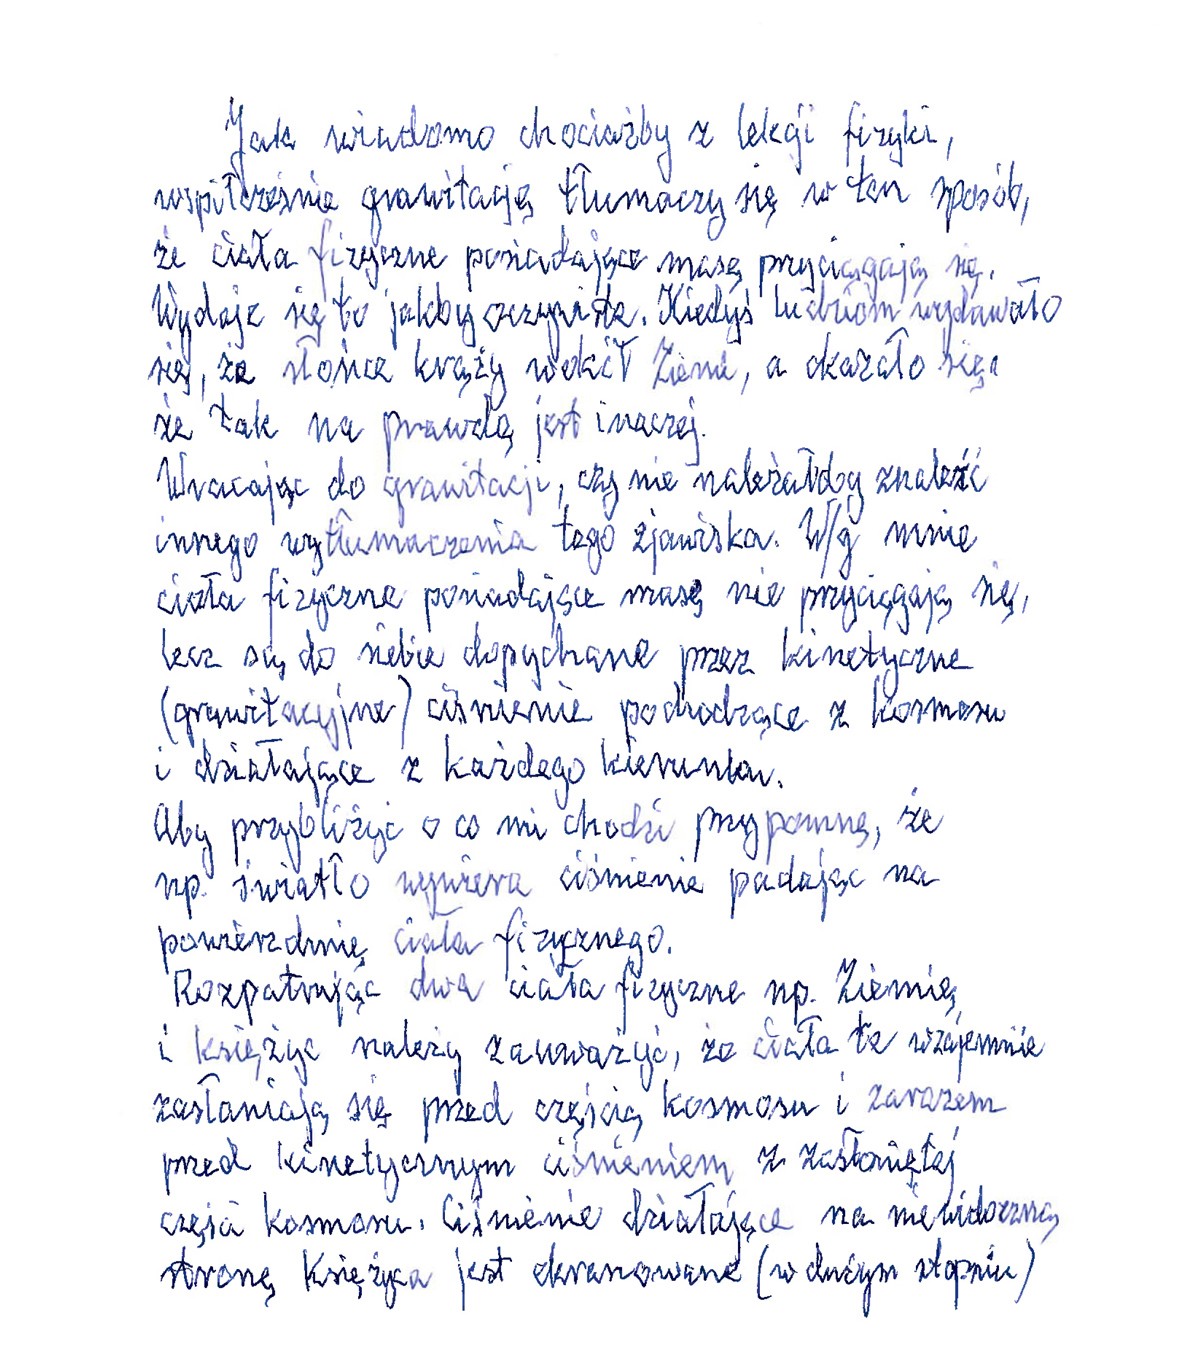 Jak wiadomo chociażby z lekcji fizyki,
współcześnie grawitację tłumaczy się w ten sposób,
że ciała fizyczne posiadające masę przyciągają się.
Wydaje się to jakby oczywiste. Kiedyś ludziom wydawało
się, że słońce krąży wokół Ziemi, a okazało się,
że tak na prawdę jest inaczej.
Wracając do grawitacji, czy nie należałoby znaleźć
innego wytłumaczenia tego zjawiska. W/g mnie
ciała fizyczne posiadające masę nie przyciągają się,
lecz są do siebie dopychane przez kinetyczne
(grawitacyjne) ciśnienie pochodzące z kosmosu
i działające z każdego kierunku.
Aby przybliżyć o co mi chodzi przypomnę, że
np. światło wywiera ciśnienie padając na
powierzchnię ciała fizycznego.
Rozpatrując dwa ciała fizyczne np. Ziemię
i księżyc należy zauważyć, że ciała te wzajemnie
zasłaniają się przed częścią kosmosu i zarazem
przed kinetycznym ciśnieniem z zasłoniętej
części kosmosu. Ciśnienie działające na niewidoczną
stronę Księżyca jest ekranowane (w dużym stopniu)